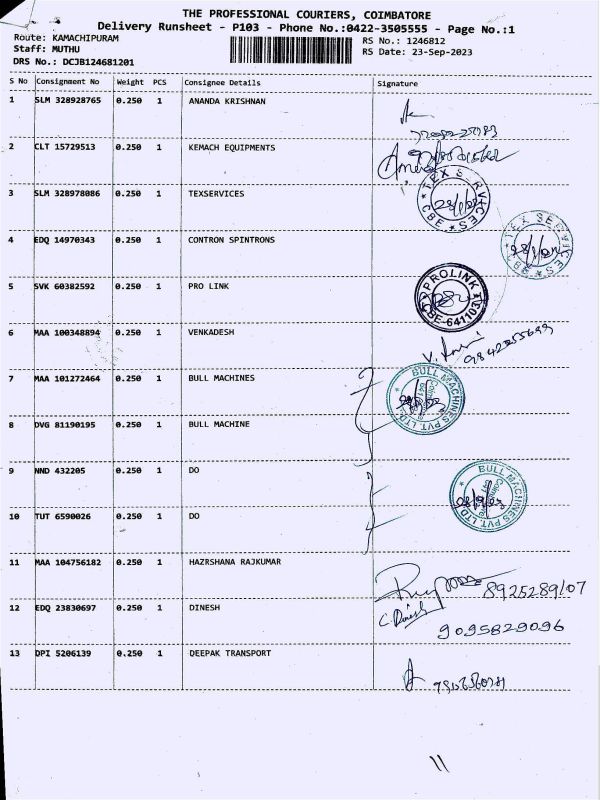 THE PROFESSIONAL COURIERS, COIMBATORE
Delivery Runsheet - P103 - Phone No.:0422-3505555 - Page No.:1
Route: KAMACHIPURAM
RS No.: 1246812
Staff: MUTHU
RS Date: 23-Sep-2023
DRS No.: DCJB124681201
S No Consignment No Weight PCS Consignee Details Signature
1 SLM 328928765 0.250 1 ANANDA KRISHNAN
2 CLT 15729513 0.250 1 KEMACH EQUIPMENTS
3 SLM 328978086 0.250 1 TEXSERVICES
TEX SERVICES * CBE *
4 EDQ 14970343 0.250 1 CONTRON SPINTRONS
TEX SERVICES * CBE *
5 SVK 60382592 0.250 1 PRO LINK
PROLINK
CBE-641103
6 MAA 100348894 0.250 1 VENKADESH
7 MAA 101272464 0.250 1 BULL MACHINES
BULL MACHINES PVT. LTD
8 DVG 81190195 0.250 1 BULL MACHINE
9 NND 432205 0.250 1 DO
BULL MACHINES PVT. LTD
10 TUT 6590026 0.250 1 DO
11 MAA 104756182 0.250 1 HAZRSHANA RAJKUMAR
8925289107
12 EDQ 23830697 0.250 1 DINESH
C. Dinesh
9095829096
13 DPI 5206139 0.250 1 DEEPAK TRANSPORT
11